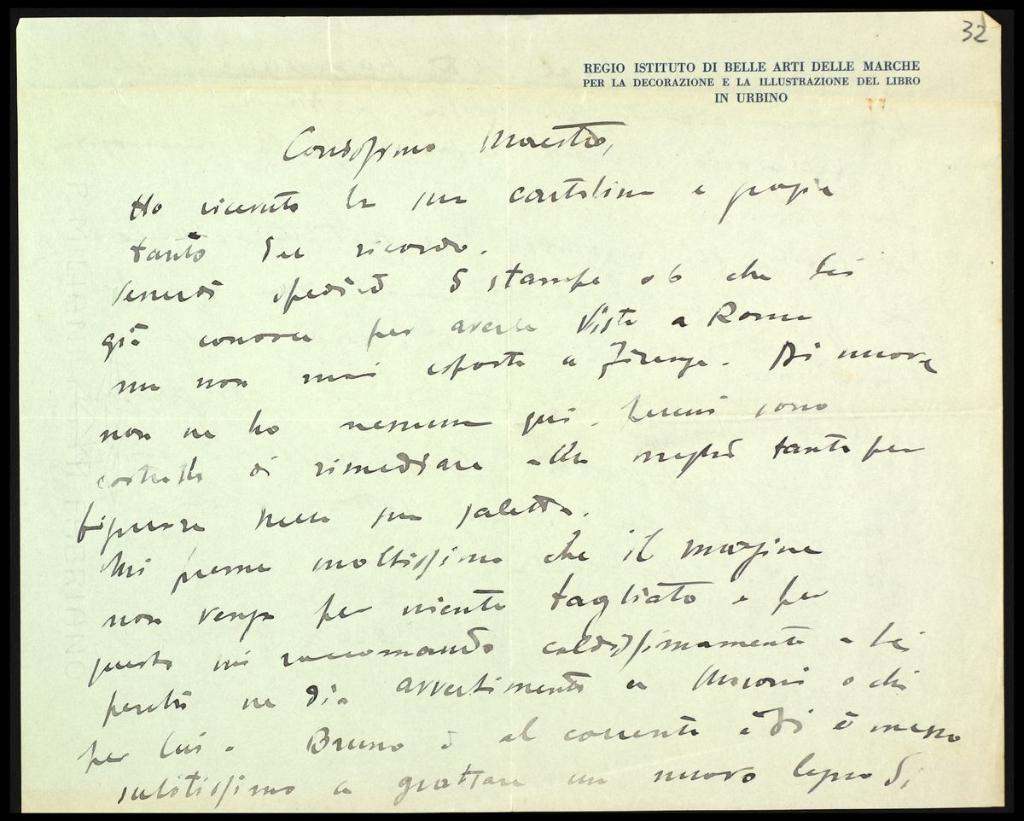 32
REGIO ISTITUTO DI BELLE ARTI DELLE MARCHE
PER LA DECORAZIONE E LA ILLUSTRAZIONE DEL LIBRO
IN URBINO
Carissimo Maestro,
Ho ricevuto la sua cartolina e grazie
tanto del ricordo.
Venerdì spedirò 5 stampe o 6 che lei
già conosce per averle viste a Roma
ma non mai esposte a Firenze. Di nuove
non ne ho nessuna qui. sono
costretto di rimediare alla meglio tanto per
figurare nella sua saletta.
Mi preme moltissimo che il margine
non venga per niente tagliato e per
questo mi raccomando caldissimamente a lei
perché ne dia avvertimento a o chi
per lui. Bruno è al corrente e si è messo
subitissimo a grattare un nuovo legno di